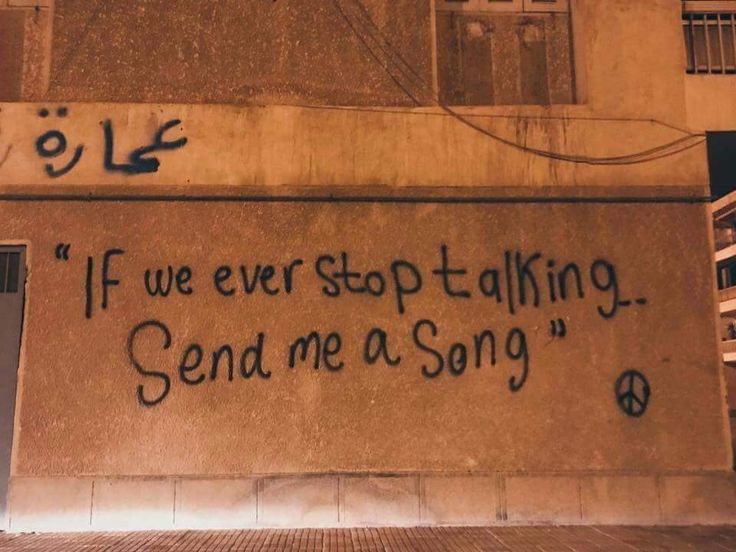 عمارة
"If we ever stop talking..
Send me a song"